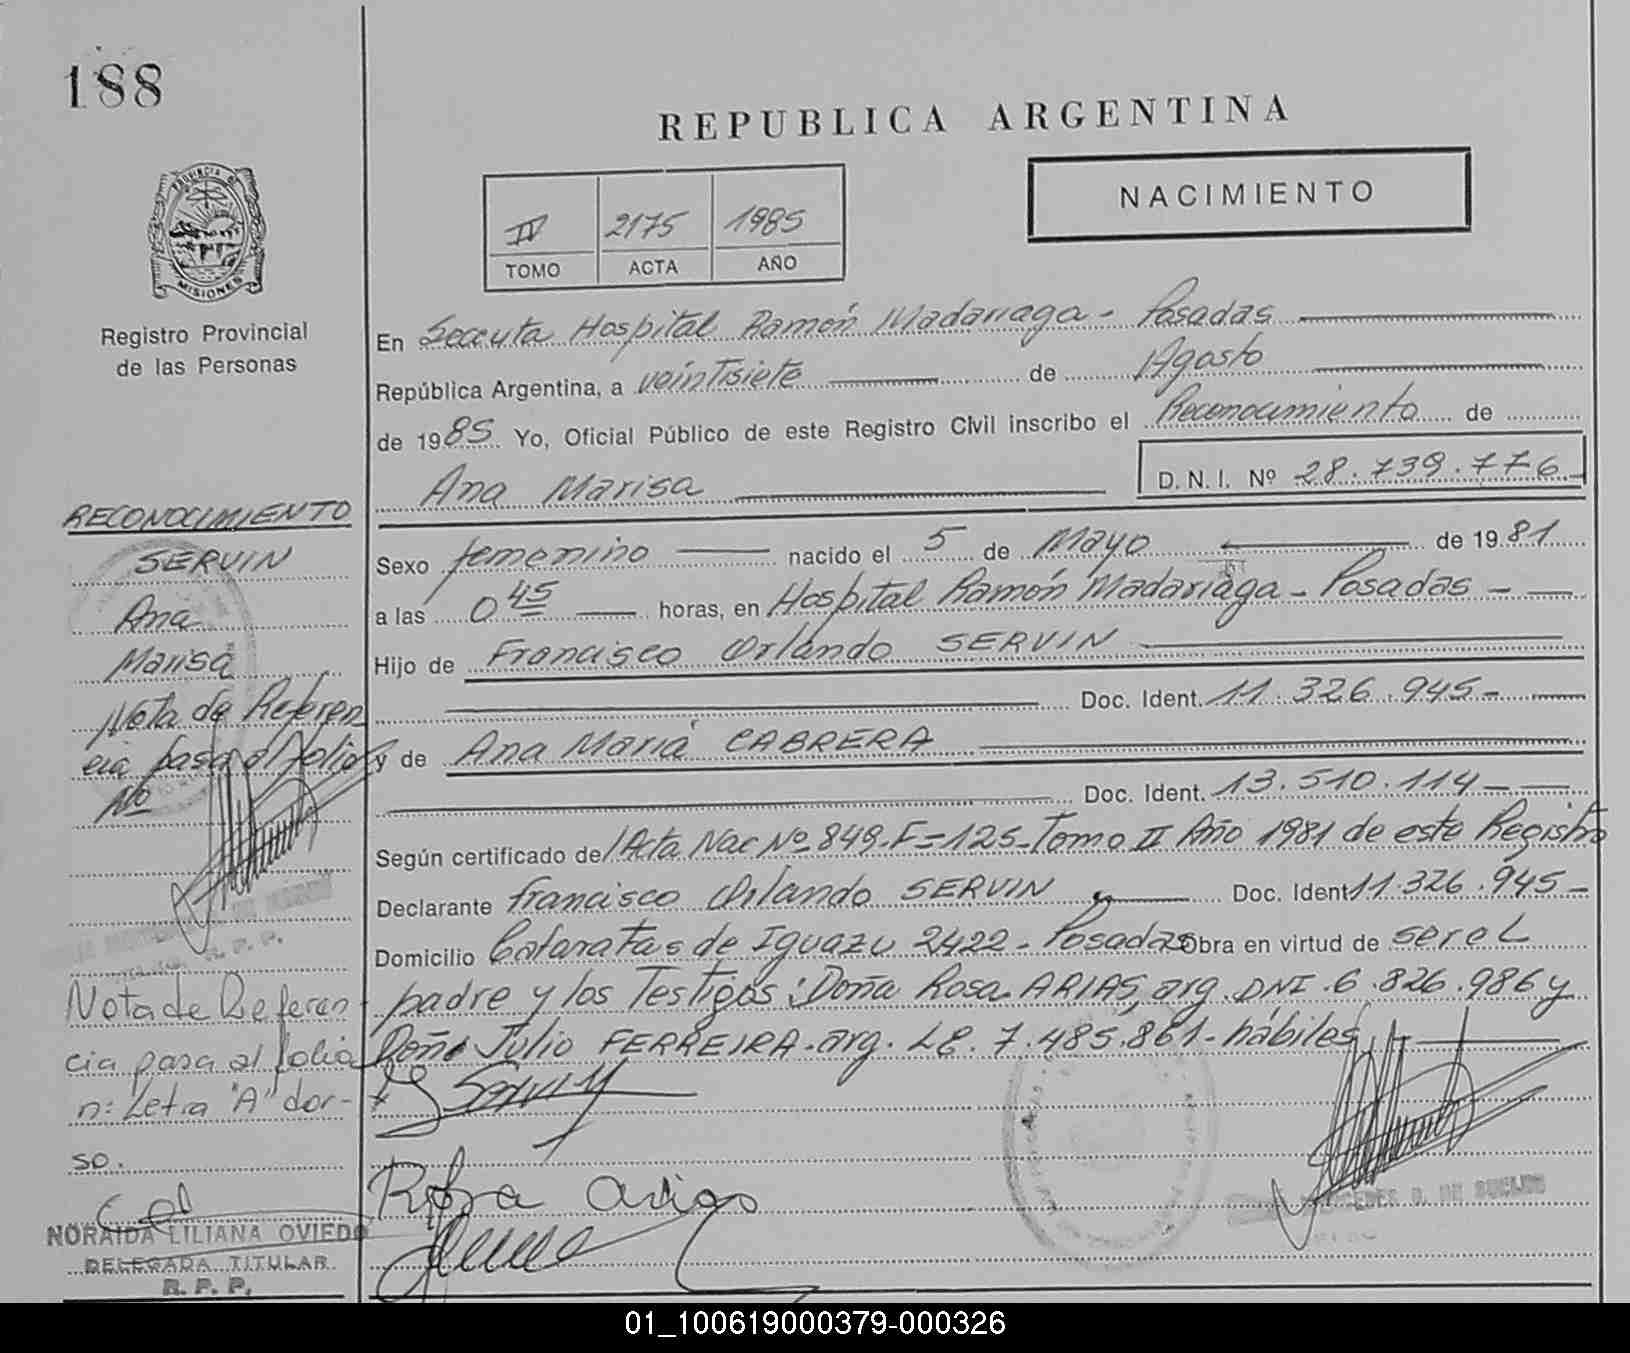 188
REPUBLICA ARGENTINA
NACIMIENTO
IV 2175 1985
TOMO ACTA AÑO
PROVINCIA DE
MISIONES
Registro Provincial
de las Personas
En Hospital Ramón Madariaga - Posadas
República Argentina, a veintisiete de Agosto
de 1985 Yo, Oficial Público de este Registro Civil inscribo el Reconocimiento de
Ana Marisa D.N.I. Nº 28.739.776
Sexo femenino nacido el 5 de Mayo de 1981
a las 0 45 horas, en Hospital Ramón Madariaga - Posadas -
Hijo de Francisco Orlando SERVIN
Doc. Ident. 11.326.945-
y de Ana María CABRERA
Doc. Ident. 13.510.114-
Según certificado del Acta Nac Nº 849-F=125-Tomo II Año 1981 de este Registro
Declarante Francisco Orlando SERVIN Doc. Ident 11.326.945-
Domicilio Cataratas de Iguazu 2422 - Posadas Obra en virtud de ser el
padre y los Testigos: Doña Rosa ARIAS, arg. DNI.6.826.986 y
Julio FERREIRA-arg. LE. 7.485.861- hábiles
Rosa Arias
RECONOCIMIENTO
SERVIN
Ana
Marisa
Nota de Referen
cia pasa al folio
Nº
Nota de Referen-
cia pasa al folio
n: Letra "A" dor-
so.
NORAIDA LILIANA OVIEDO
DELEGADA TITULAR
R. P. P.
01_100619000379-000326